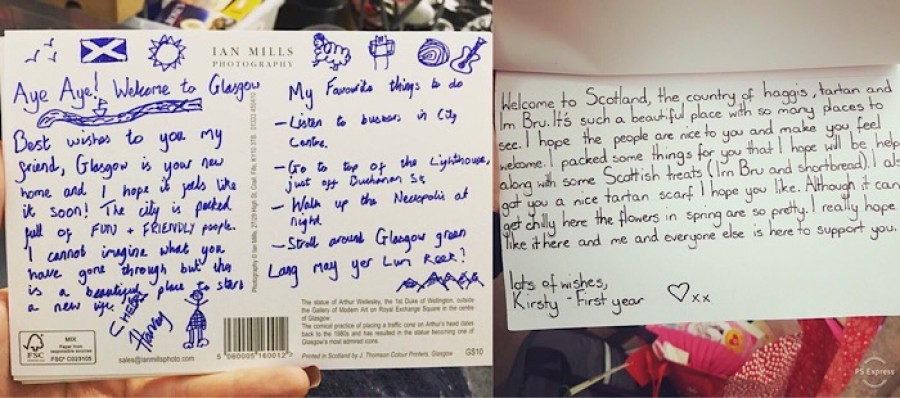 IAN MILLS
PHOTOGRAPHY
Aye Aye! Welcome to Glasgow
Best wishes to you my
friend, Glasgow is your new
home and I hope it feels like
it soon! The city is packed
full of FUN + FRIENDLY people.
I cannot imagine what you
have gone through but this
is a beautiful place to start
a new life.
CHEERS
Harvey
My Favourite things to do
- Listen to buskers in City
Centre.
- Go to top of the Lighthouse,
just off Buchanan St
- Walk up the Necropolis at
night.
- Stroll around Glasgow green
Lang may yer Lum Reek!
The statue of Arthur Wellesley, the 1st Duke of Wellington, outside
the Gallery of Modern Art on Royal Exchange Square in the centre
of Glasgow.
The comical practice of placing a traffic cone on Arthur's head dates
back to the 1980s and has resulted in the statue becoming one of
Glasgow's most admired icons.
Printed in Scotland by J. Thomson Colour Printers, Glasgow
GS10
FSC
MIX
Paper from
responsible sources
FSC® C023105
sales@ianmillsphoto.com
5 060005 160012
Photography © Ian Mills, 27/29 High St,
Welcome to Scotland, the country of haggis, tartan and
Irn Bru. It's such a beautiful place with so many places to
see. I hope the people are nice to you and make you feel
welcome. I packed some things for you that I hope will be help
along with some Scottish treats (Irn Bru and shortbread). I als
got you a nice tartan scarf I hope you like. Although it can
get chilly here the flowers in spring are so pretty. I really hope
like it here and me and everyone else is here to support you.
lots of wishes,
Kirsty - First year xx
PS Express